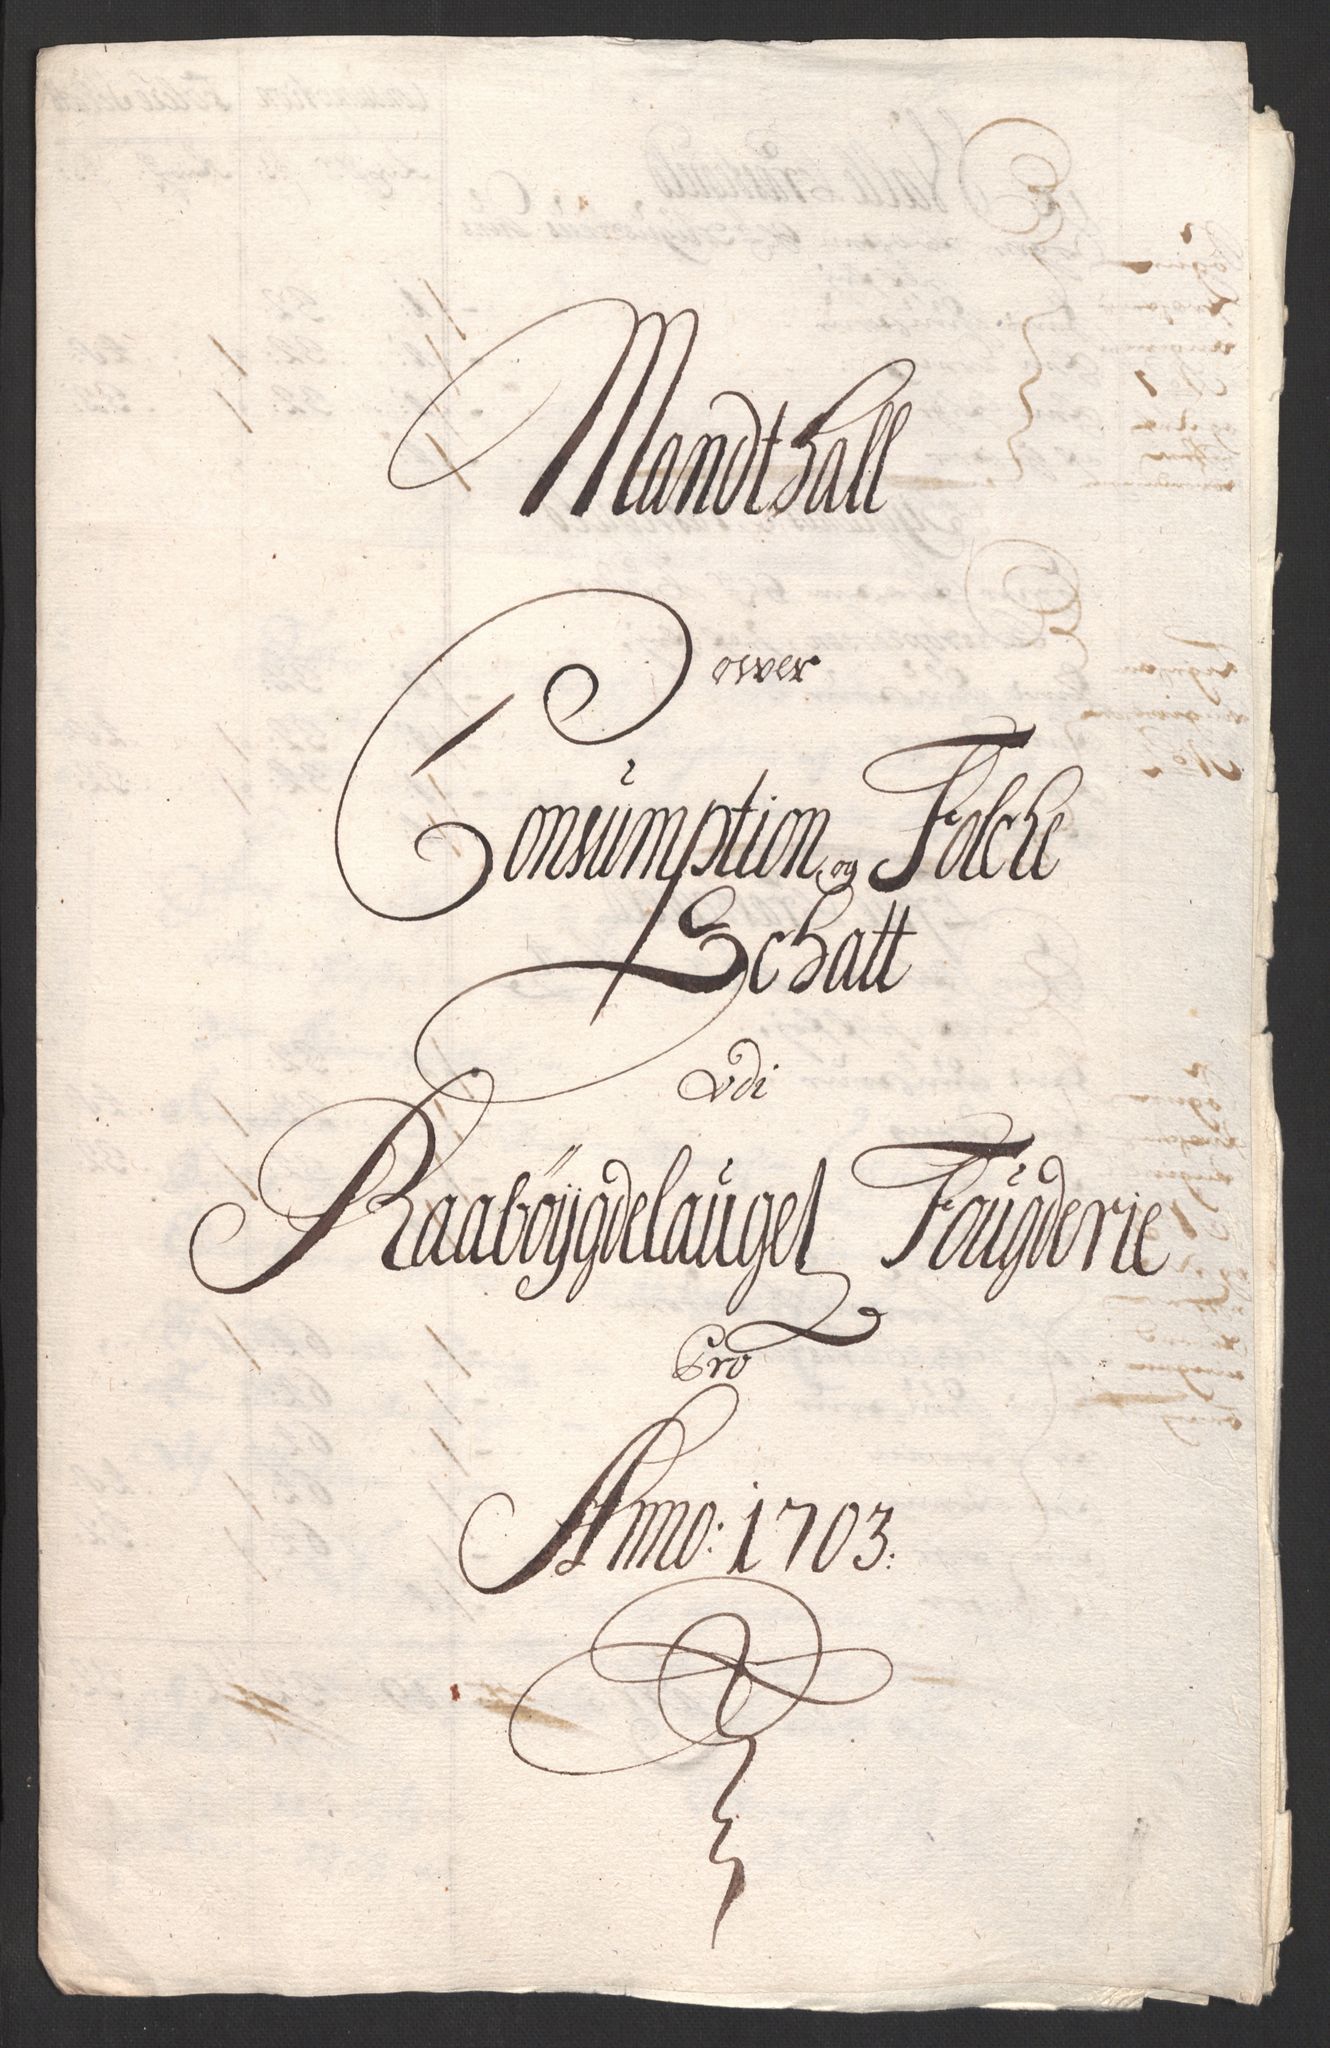 Mandthall
ower
Consumption og Folche
Schatt
vdi
Raabøygdelauget Fougderie
Pro
Anno: 1703: